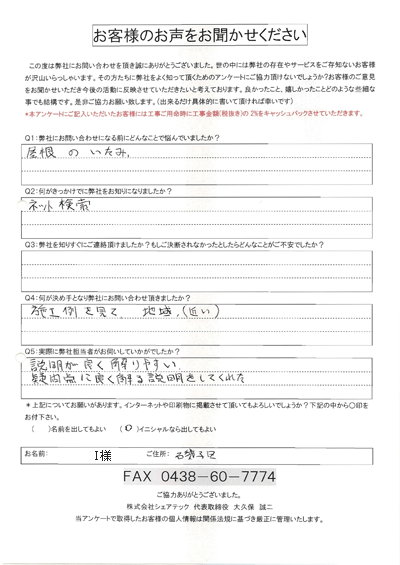 お客様のお声をお聞かせください
この度は弊社にお問い合わせを頂き誠にありがとうございました。世の中には弊社の存在やサービスをご存知ないお客様
が沢山いらっしゃいます。その方たちに弊社をよく知って頂くためのアンケートにご協力頂けないでしょうか?お客様のご意見
をお聞かせいただき今後の活動に反映させていただきたいと考えております。良かったこと、嬉しかったことどのような些細な
事でも結構です。是非ご協力お願い致します。(出来るだけ具体的に書いて頂ければ幸いです)
*本アンケートにご記入いただいたお客様には工事ご用命時に工事金額(税抜き)の2%をキャッシュバックさせていただきます。
Q1:弊社にお問い合わせになる前にどんなことで悩んでいましたか?
屋根のいたみ、
Q2:何がきっかけでに弊社をお知りになりましたか?
ネット検索
Q3:弊社を知りすぐにご連絡頂けましたか?もしご決断されなかったとしたらどんなことがご不安でしたか?
Q4:何が決め手となり弊社にお問い合わせ頂きましたか?
施工例を見て、地域、(近い)
Q5:実際に弊社担当者がお伺いしていかがでしたか?
説明が良く解りやすい
疑問点に良く解る説明をしてくれた
*上記についてお願いがあります。インターネットや印刷物に掲載させて頂してもよろしいでしょうか?下記の中から〇印を
お付け下さい。
( )名前を出してもよい (〇)イニシャルなら出してもよい
お名前: I様 ご住所:
FAX 0438-60-7774
ご協力ありがとうございました。
株式会社シェアテック 代表取締役 大久保 誠二
当アンケートで取得したお客様の個人情報は関係法規に基づき厳正に管理いたします。